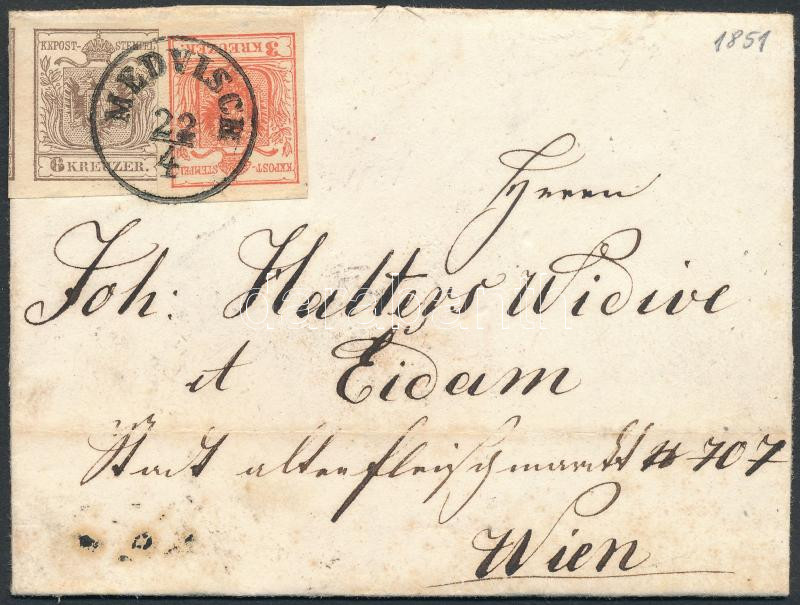 1851
KKPOST-STEMPEL
6 KREUZER.
KKPOST-STEMPEL
3 KREUZER.
MEDVISCH
22
4
Herrn
Joh: Halters Widwe
et Eidam
Stadt altenfleischmarkt № 707
Wien
darabanth